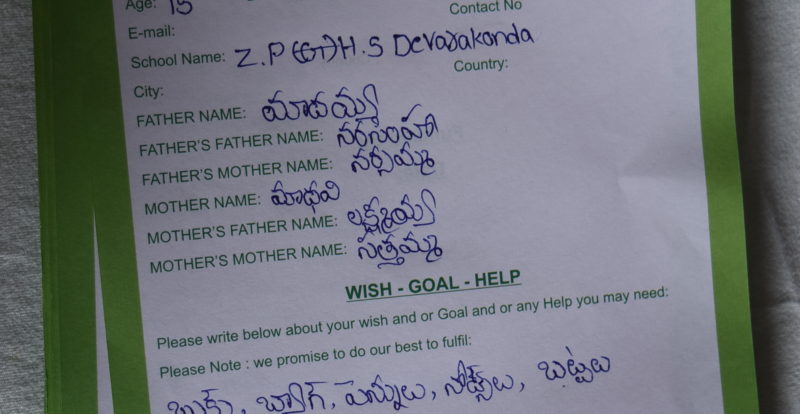 Age: 15
Contact No
E-mail:
School Name: Z.P(GT)H.S Devarakonda
City: Country:
FATHER NAME: మాదయ్య
FATHER'S FATHER NAME: నరసింహా
FATHER'S MOTHER NAME: నర్సమ్మ
MOTHER NAME: మాధవి
MOTHER'S FATHER NAME: లక్ష్మయ్య
MOTHER'S MOTHER NAME: సత్తమ్మ
WISH - GOAL - HELP
Please write below about your wish and or Goal and or any Help you may need:
Please Note : we promise to do our best to fulfil:
బుక్స్, బ్యాగ్, పెన్నులు, నోట్స్‌లు, బట్టలు